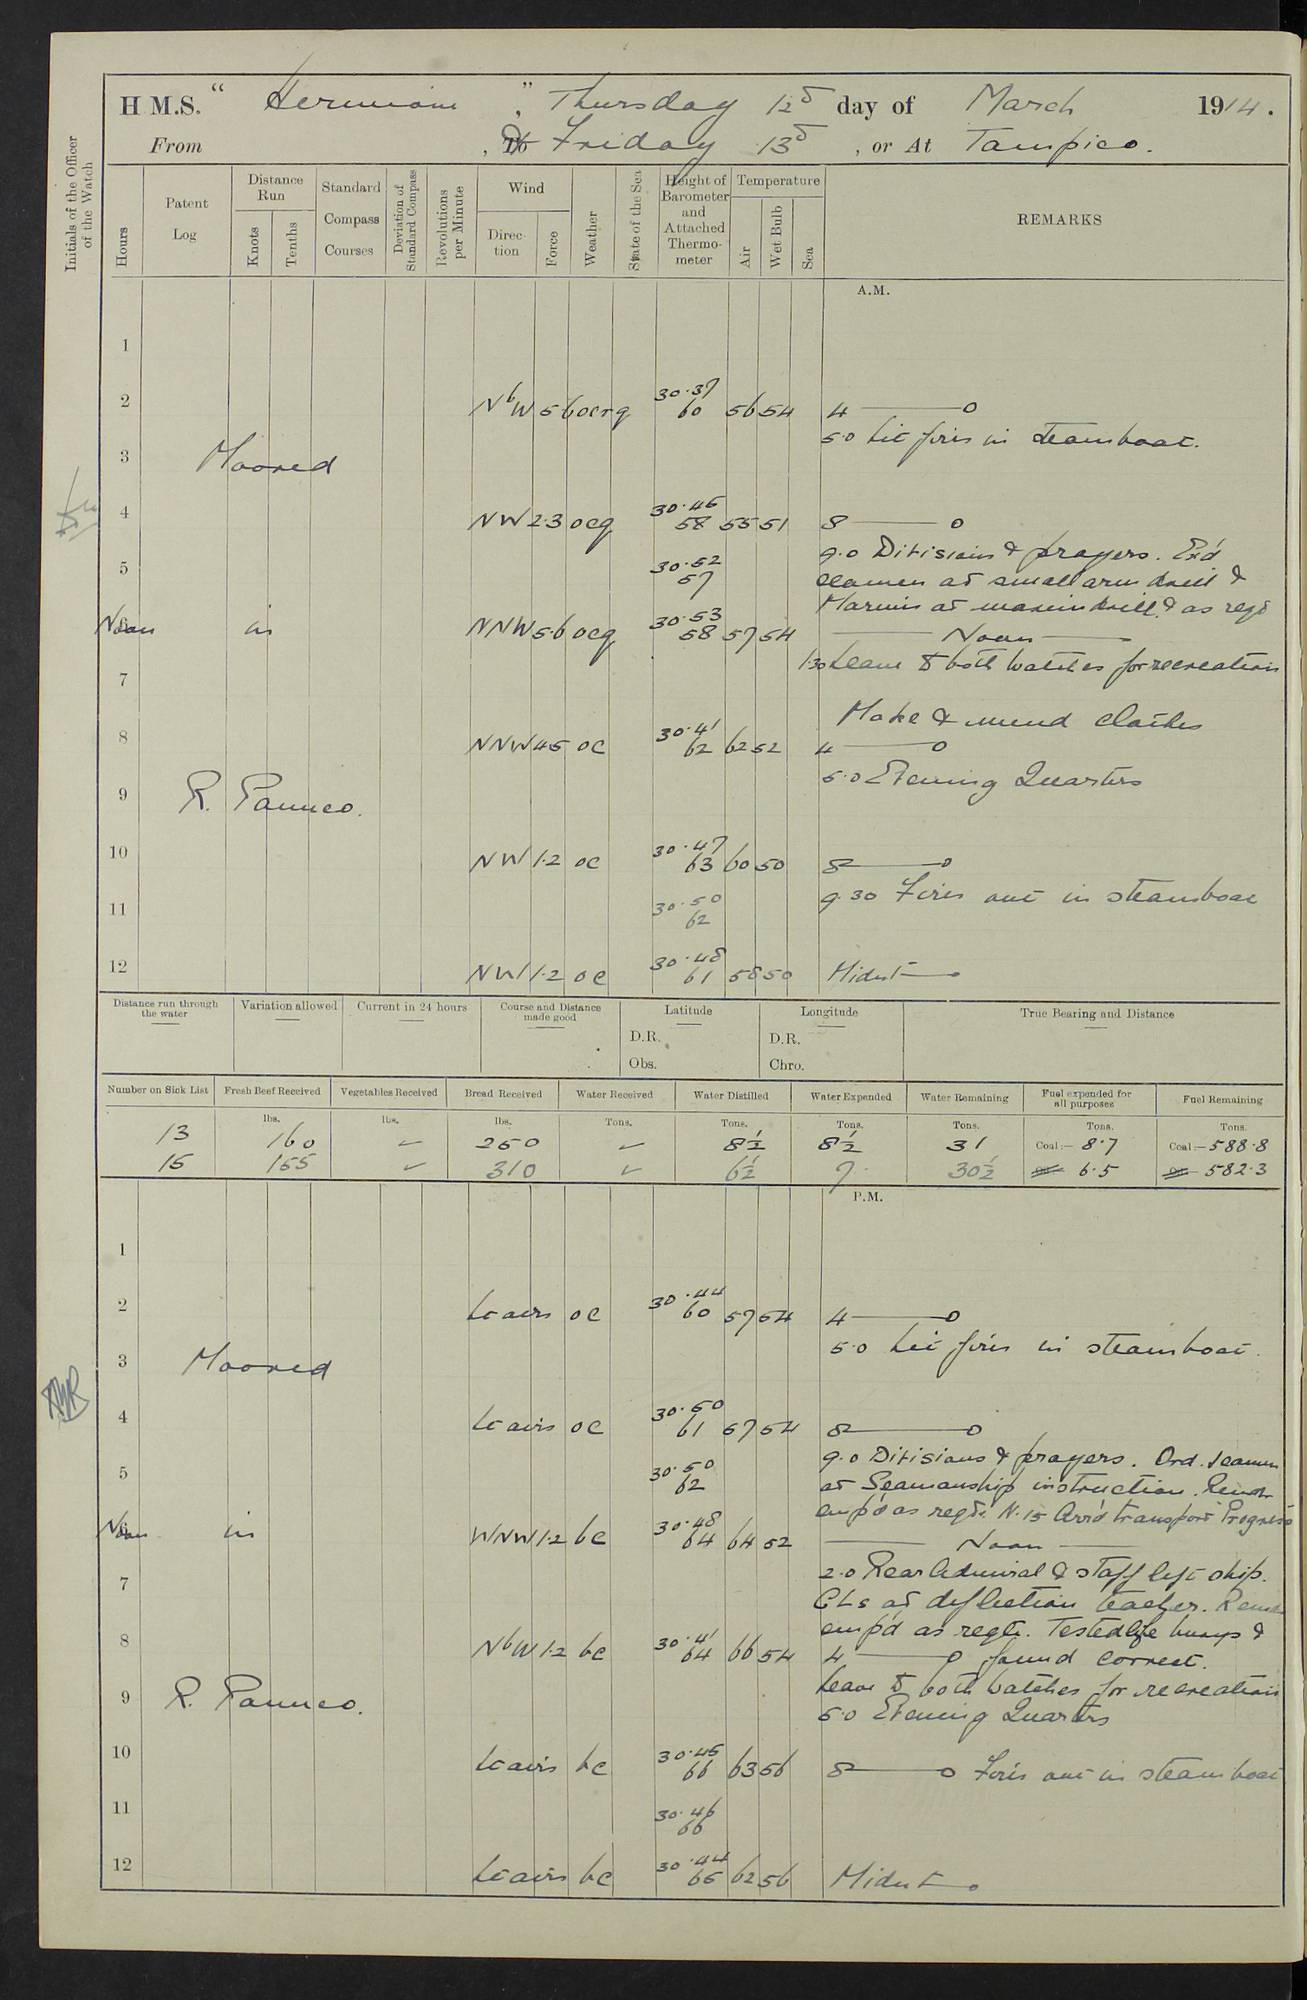 H M.S. " Hermione ", Thursday 12th day of March 1914.
From , & Friday 13th , or At Tampico.
Initials of the Officer of the Watch
Hours
Patent Log
Distance Run
Knots
Tenths
Standard Compass Courses
Deviation of Standard Compass
Revolutions per Minute
Wind
Direction
Force
Weather
State of the Sea
Height of Barometer and Attached Thermometer
Temperature
Air
Wet Bulb
Sea
REMARKS
A.M.
1
2 NbW 5-6 ocrq 30.37 60 56 54 4
5.0 Lit fires in steamboat.
3 Moored
4 NW 2.3 ocq 30.46 58 55 51 8
9.0 Divisions & prayers. Ex'd
5 30.52 57 seamen at small arm drill &
Marines at maxim drill & as reqd
Noon in NNW 5.6 ocq 30.53 58 57 54 Noon
1.30 Leave to both watches for recreation
7
Make & mend clothes
8 NNW 4.5 oc 30.41 62 62 52 4
5.0 Evening Quarters
9 R. Panuco.
10 NW 1.2 oc 30.47 63 60 50 8
9.30 Fires out in steamboat
11 30.50 62
12 NW 1.2 oc 30.48 61 58 50 Midnt
Distance run through the water
Variation allowed
Current in 24 hours
Course and Distance made good
Latitude
D.R.
Obs.
Longitude
D.R.
Chro.
True Bearing and Distance
Number on Sick List Fresh Beef Received Vegetables Received Bread Received Water Received Water Distilled Water Expended Water Remaining Fuel expended for all purposes Fuel Remaining
lbs. lbs. lbs. Tons. Tons. Tons. Tons. Tons. Tons.
13 160 ✓ 250 ✓ 8½ 8½ 31 Coal:— 8.7 Coal:— 588.8
15 155 ✓ 310 ✓ 6½ 7. 30½ 6.5 582.3
P.M.
1
2 Lt airs oc 30.44 60 57 54 4
5.0 Lit fires in steamboat.
3 Moored
4 Lt airs oc 30.50 61 57 54 8
9.0 Divisions & prayers. Ord. seamen
5 30.50 62 at Seamanship instruction. Remdr
emp'd as reqte. 11.15 Arr'd transport Progreso
Noon in WNW 1.2 bc 30.48 64 64 52 Noon
2.0 Rear Admiral & staff left ship.
7 GLs at deflection teacher. Remdr
emp'd as reqte. Tested life buoys &
8 NbW 1.2 bc 30.41 64 66 54 4 found correct.
Leave to both watches for recreation
9 R. Panuco. 5.0 Evening Quarters
10 Lt airs bc 30.45 66 63 56 8 Fires out in steamboat
11 30.46 66
12 Lt airs bc 30.44 65 62 56 Midnt